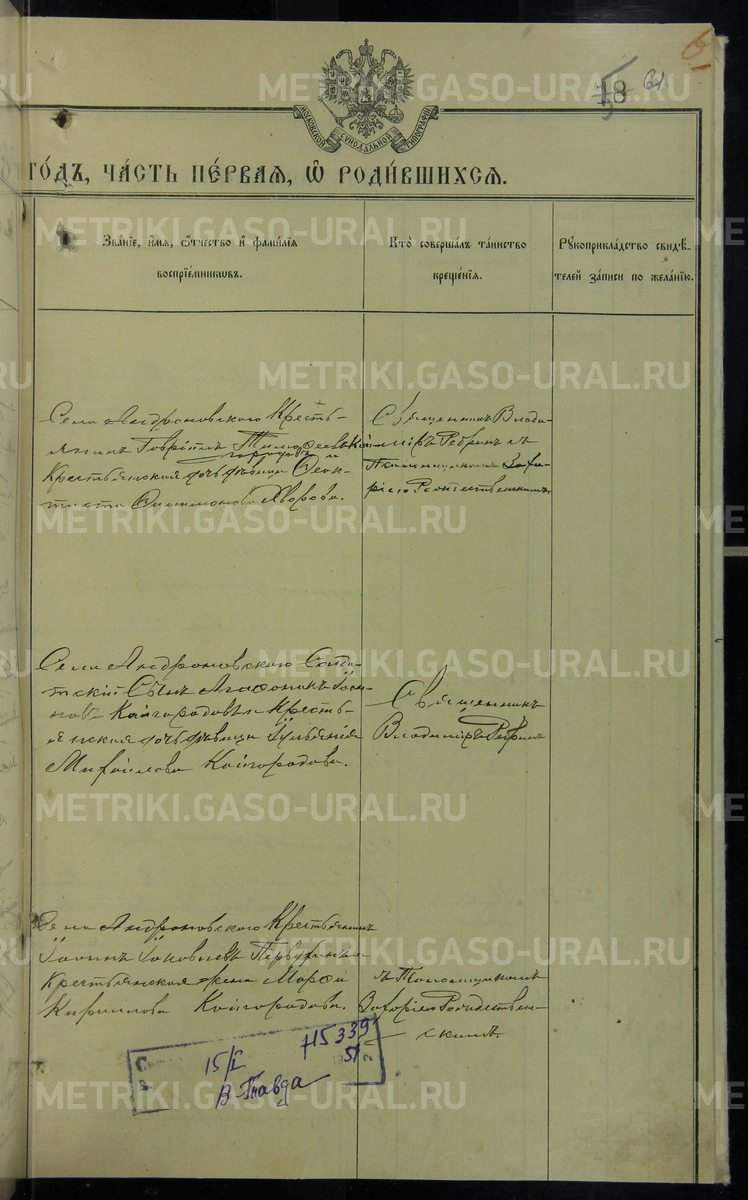 18 61
МОСКОВСКОЙ СѴНОДАЛЬНОЙ ТИПОГРАФІИ
ГО́ДЪ, ЧА́СТЬ ПЕ́РВАѦ, Ѽ РОДИ́ВШИХСѦ.
Зва́нїе, и́мѧ, ѻ҆́тчество и҆ фами́лїѧ
воспрїе́мникѡвъ.
Кто̀ соверша́лъ та́инство
креще́нїѧ.
Рꙋкоприкла́дство свидѣ́-
телей за́писи по жела́нїю.
Села Андроновскаго Кресть-
янинъ Гавріилъ Тимофеевъ Кай-
городовъ и
Крестьянская дочь дѣвица Феок-
тиста
Священникъ Влади-
міръ Ребринъ съ
Псаломщикомъ Заха-
ріею Рождественскимъ
Села Андроновскаго Солда-
тскій Сынъ Агафоникъ Іоан-
новъ Кайгородовъ и Кресть-
янская дочь дѣвица Іуліанія
Михайлова Кайгородова.
Священникъ
Владиміръ Ребринъ
Села Андроновскаго Крестьянинъ
Іоаннъ Іаковлевъ Первухинъ и
Крестьянская жена Марѳа
Кирилова Кайгородова.
съ Псаломщикомъ
Захаріею Рождествен-
скимъ.
15/I
715339
51
В-Тавда
METRIKI.GASO-URAL.RU